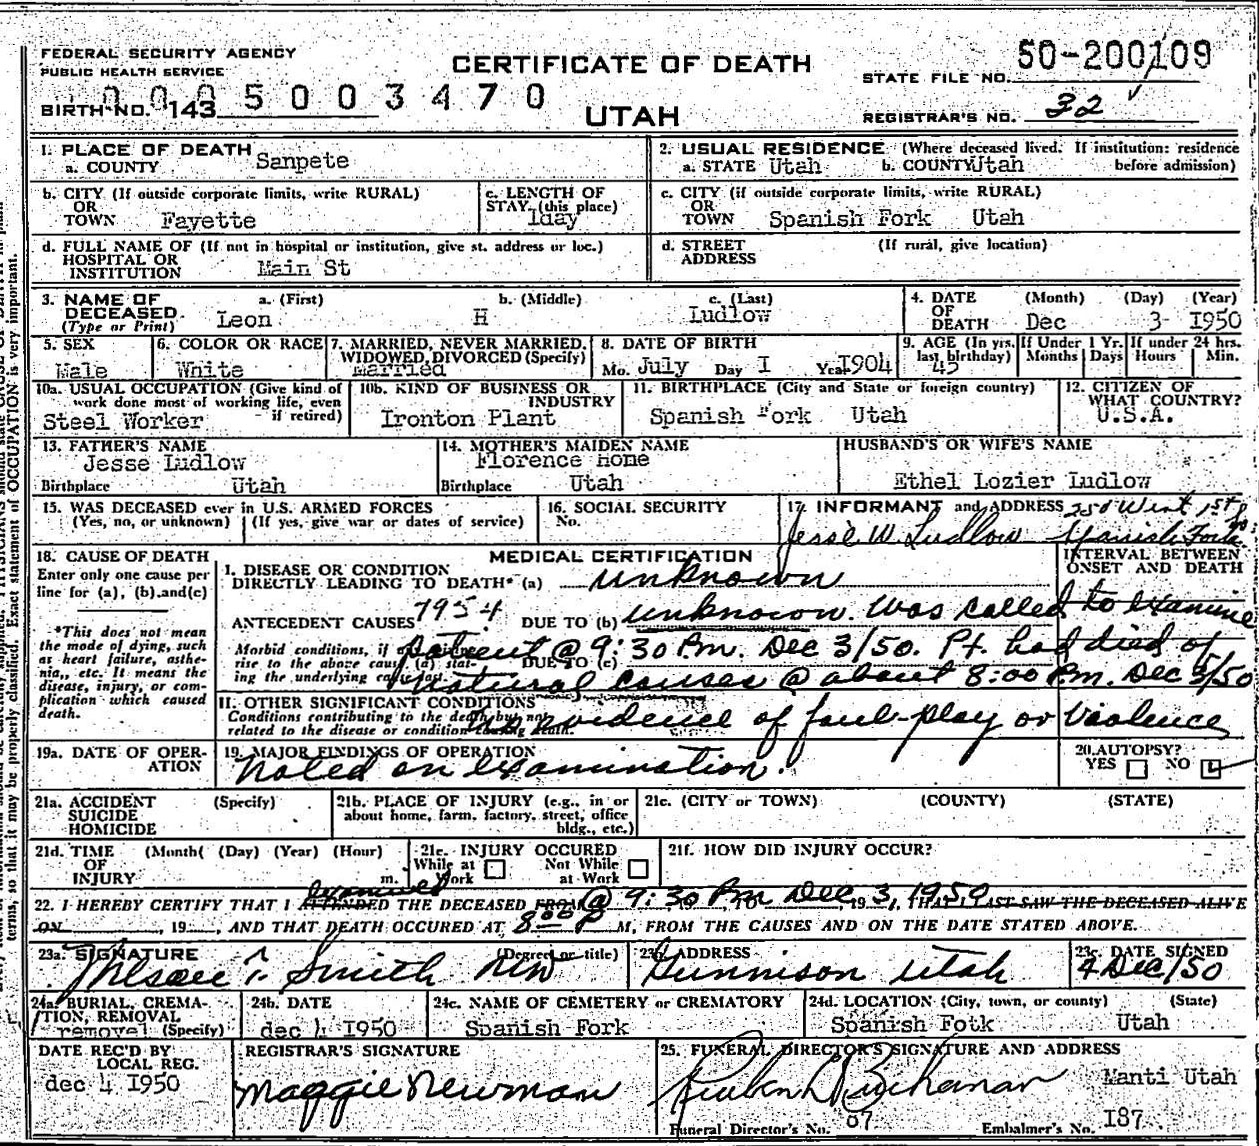 FEDERAL SECURITY AGENCY
PUBLIC HEALTH SERVICE
CERTIFICATE OF DEATH
UTAH
STATE FILE NO. 50-200109
0005003470
BIRTH NO. 143
REGISTRAR'S NO. 32
1. PLACE OF DEATH
a. COUNTY Sanpete
2. USUAL RESIDENCE (Where deceased lived. If institution: residence before admission)
a. STATE Utah b. COUNTY Utah
b. CITY (If outside corporate limits, write RURAL)
OR
TOWN Fayette
c. LENGTH OF
STAY (this place)
1day
c. CITY (if outside corporate limits, write RURAL)
OR
TOWN Spanish Fork Utah
d. FULL NAME OF (If not in hospital or institution, give st. address or loc.)
HOSPITAL OR
INSTITUTION Main St
d. STREET
ADDRESS
(If rural, give location)
3. NAME OF
DECEASED
(Type or Print)
a. (First) b. (Middle) c. (Last)
Leon H Ludlow
4. DATE
OF
DEATH
(Month) (Day) (Year)
Dec 3 1950
5. SEX
Male
6. COLOR OR RACE
White
7. MARRIED, NEVER MARRIED,
WIDOWED, DIVORCED (Specify)
Married
8. DATE OF BIRTH
Mo. July Day 1 Yr. 1904
9. AGE (In yrs. last birthday)
45
If Under 1 Yr.
Months Days
If under 24 hrs.
Hours Min.
10a. USUAL OCCUPATION (Give kind of
work done most of working life, even
if retired)
Steel Worker
10b. KIND OF BUSINESS OR
INDUSTRY
Ironton Plant
11. BIRTHPLACE (City and State or foreign country)
Spanish Fork Utah
12. CITIZEN OF
WHAT COUNTRY?
U.S.A.
13. FATHER'S NAME
Jesse Ludlow
Birthplace Utah
14. MOTHER'S MAIDEN NAME
Florence Hone
Birthplace Utah
HUSBAND'S OR WIFE'S NAME
Ethel Lozier Ludlow
15. WAS DECEASED ever in U.S. ARMED FORCES
(Yes, no, or unknown) (If yes, give war or dates of service)
16. SOCIAL SECURITY
No.
17. INFORMANT and ADDRESS 250 West 1st
Jesse W. Ludlow Spanish Fork
18. CAUSE OF DEATH
Enter only one cause per
line for (a), (b) and (c)
*This does not mean
the mode of dying, such
as heart failure, asthe-
nia, etc. It means the
disease, injury, or com-
plication which caused
death.
MEDICAL CERTIFICATION
INTERVAL BETWEEN
ONSET AND DEATH
I. DISEASE OR CONDITION
DIRECTLY LEADING TO DEATH* (a) unknown
7954
ANTECEDENT CAUSES DUE TO (b) unknown. Was called to examine
Morbid conditions, if any, giving
rise to the above cause (a) stat-
ing the underlying cause last.
DUE TO (c)
patient @ 9:30 P.M. Dec 3/50. Pt. had died of
natural causes @ about 8:00 P.M. Dec 3/50
II. OTHER SIGNIFICANT CONDITIONS
Conditions contributing to the death but not
related to the disease or condition causing death.
no evidence of foul-play or violence
19a. DATE OF OPER-
ATION
19. MAJOR FINDINGS OF OPERATION
noted on examination.
20. AUTOPSY?
YES NO
21a. ACCIDENT
SUICIDE
HOMICIDE
(Specify)
21b. PLACE OF INJURY (e.g., in or
about home, farm, factory, street, office
bldg., etc.)
21c. (CITY or TOWN) (COUNTY) (STATE)
21d. TIME
OF
INJURY
(Month( (Day) (Year) (Hour)
m.
21e. INJURY OCCURED
While at
Work
Not While
at Work
21f. HOW DID INJURY OCCUR?
examined @ 9:30 P.M. Dec 3, 1950
22. I HEREBY CERTIFY THAT I ATTENDED THE DECEASED FROM , 19 , TO , 19 , THAT I LAST SAW THE DECEASED ALIVE
ON , 19 , AND THAT DEATH OCCURED AT 8:00 P M, FROM THE CAUSES AND ON THE DATE STATED ABOVE.
23a. SIGNATURE (Degree or title)
Smith MD
23b. ADDRESS
Gunnison Utah
23c. DATE SIGNED
4 Dec/50
24a. BURIAL, CREMA-
TION, REMOVAL
removal (Specify)
24b. DATE
dec 4 1950
24c. NAME OF CEMETERY or CREMATORY
Spanish Fork
24d. LOCATION (City, town, or county) (State)
Spanish Fotk Utah
DATE REC'D BY
LOCAL REG.
dec 4 1950
REGISTRAR'S SIGNATURE
Maggie Newman
25. FUNERAL DIRECTOR'S SIGNATURE AND ADDRESS
Buchanan Manti Utah
Funeral Director's No. 67 Embalmer's No. 187
terms, so that it may be properly classified. Exact statement of OCCUPATION is very important.